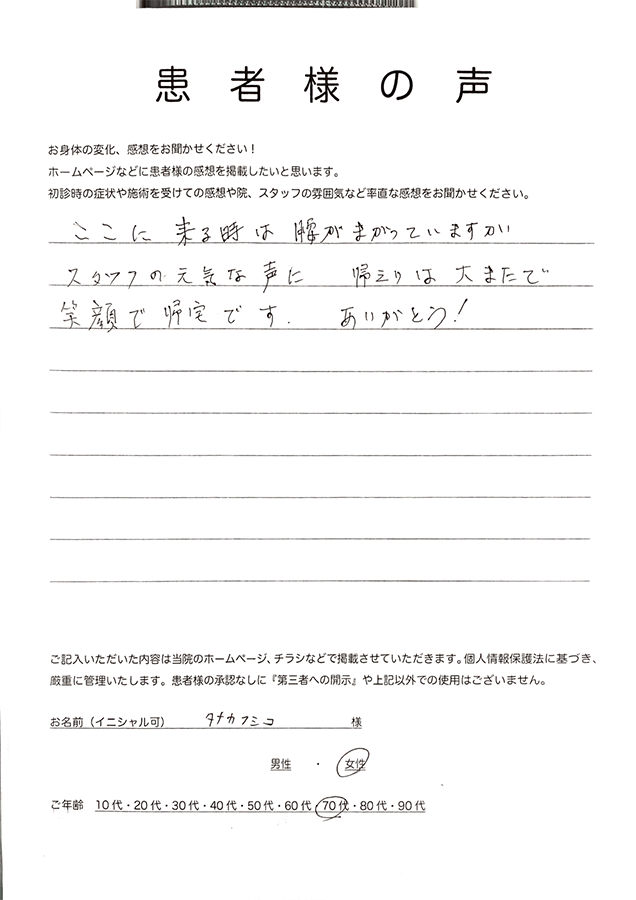 患者様の声
お身体の変化、感想をお聞かせください!
ホームページなどに患者様の感想を掲載したいと思います。
初診時の症状や施術を受けての感想や院、スタッフの雰囲気など率直な感想をお聞かせください。
ここに来る時は 腰がまがっていますが
スタッフの元気な声に 帰えりは大またで
笑顔で帰宅です. ありがとう!
ご記入いただいた内容は当院のホームページ、チラシなどで掲載させていただきます。個人情報保護法に基づき、
厳重に管理いたします。患者様の承認なしに『第三者への開示』や上記以外での使用はございません。
お名前(イニシャル可) タナカフミコ 様
男性 ・ 女性
ご年齢 10代・20代・30代・40代・50代・60代・70代・80代・90代